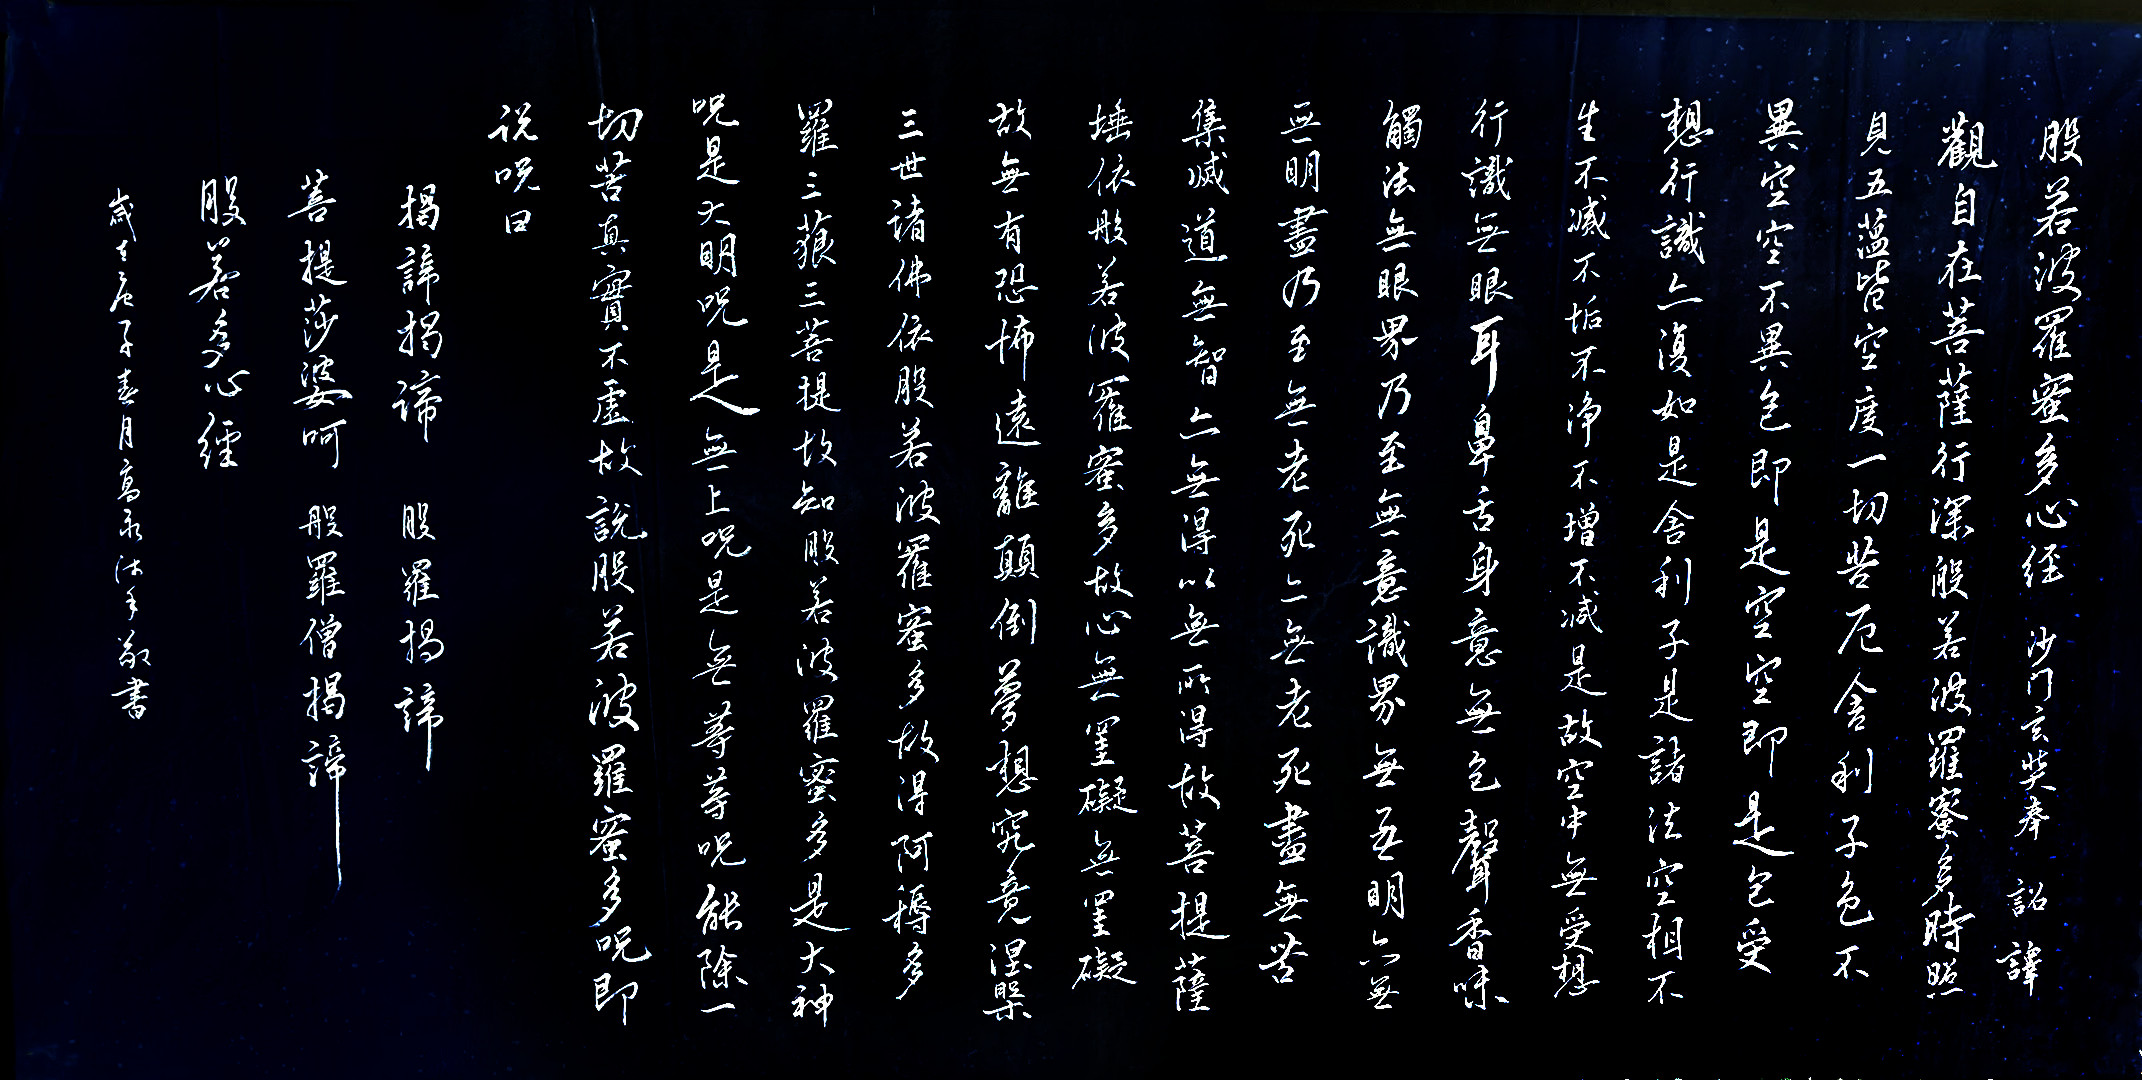 般若波羅蜜多心経 沙門玄奘奉 詔 譯
觀自在菩薩行深般若波羅蜜多時照
見五蘊皆空度一切苦厄舍利子色不
異空空不異色即是空空即是色受
想行識亦復如是舍利子是諸法空相不
生不滅不垢不净不增不减是故空中無受想
行識無眼耳鼻舌身意無色聲香味
觸法無眼界乃至無意識界無無明亦無
無明盡乃至無老死亦無老死盡無苦
集滅道無智亦無得以無所得故菩提薩
埵依般若波羅蜜多故心無罣礙無罣礙
故無有恐怖遠離顛倒夢想究竟涅槃
三世諸佛依般若波羅蜜多故得阿耨多
羅三藐三菩提故知般若波羅蜜多是大神
呪是大明呪是無上呪是無等等呪能除一
切苦真實不虛故說般若波羅蜜多呪即
说呪曰
揭諦揭諦 般羅揭諦
菩提莎婆呵 般羅僧揭諦
般若多心經
歲在庚子春月高永沐手敬書